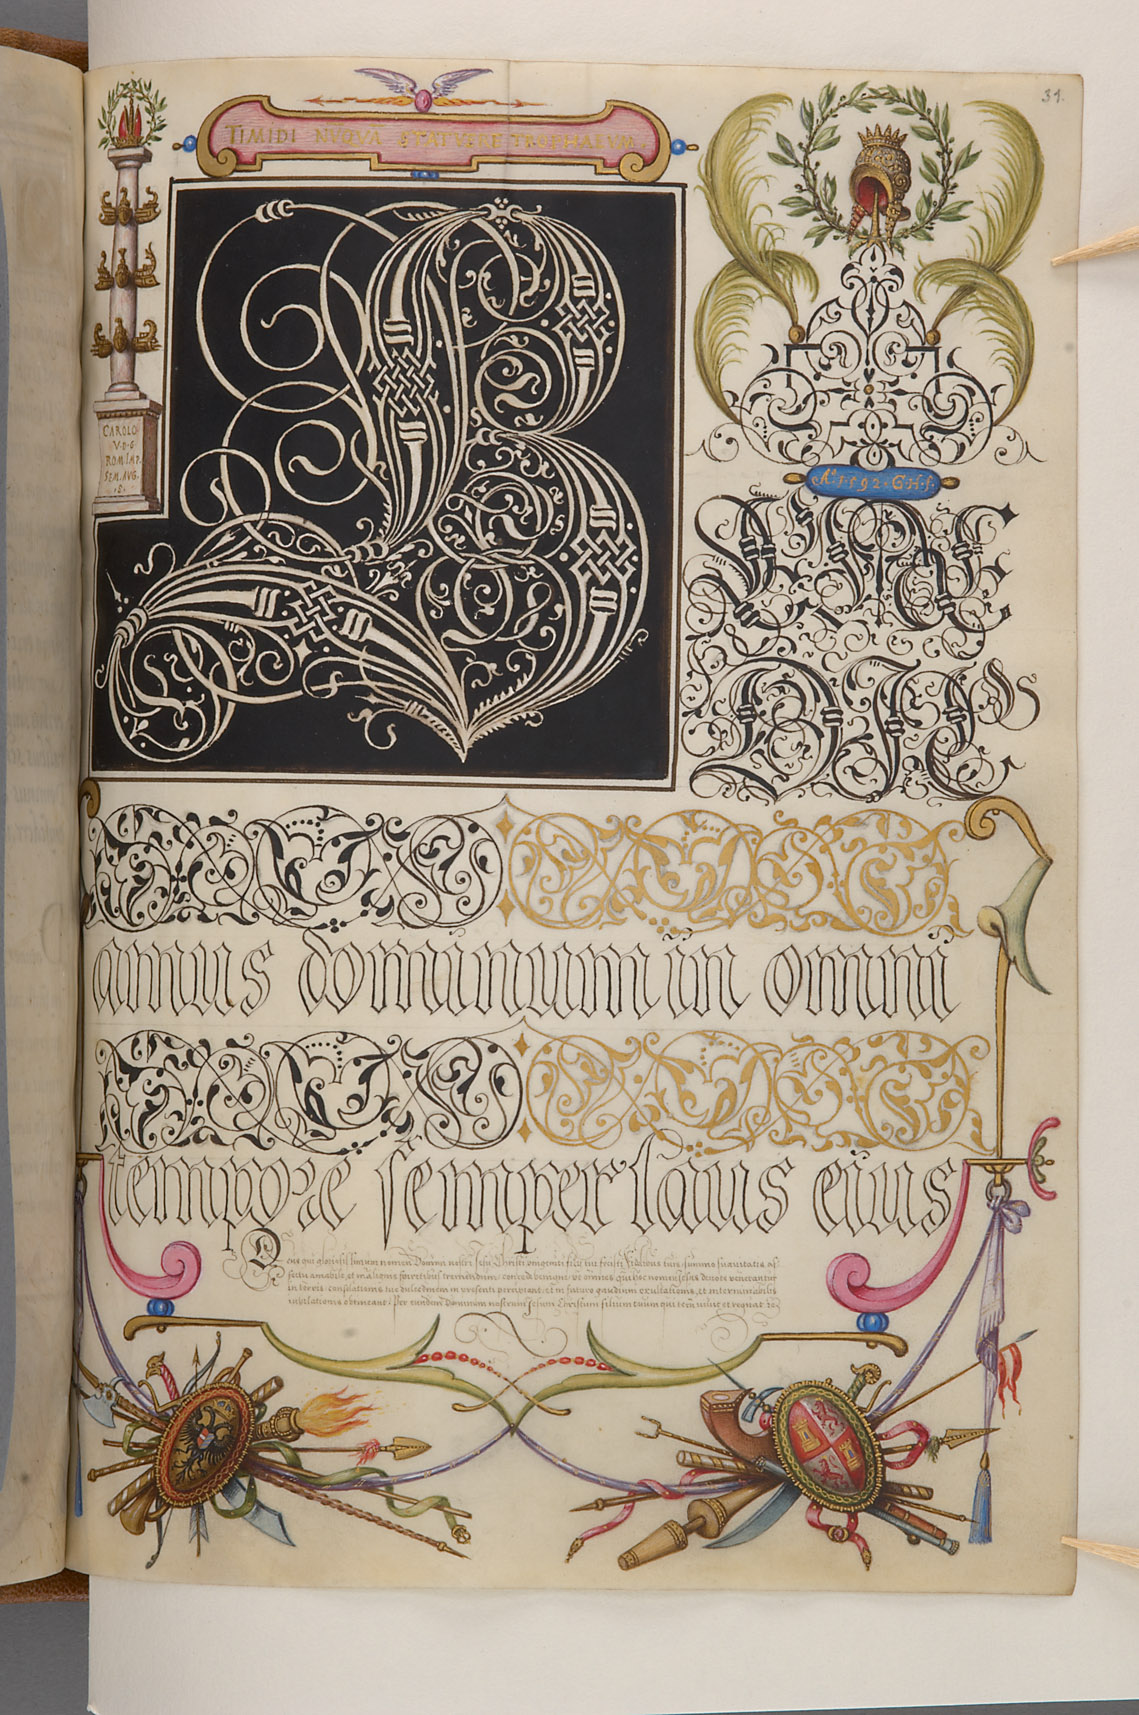 31.
TIMIDI NŨQUÃ STATUERE TROPHAEUM.
CAROLO
V·D·G
ROM IMP.
SEM. AVG.
Aº 1592·G·H·f.
B
ENE
DIC
amus dominum in omni
tempore semper laus eius
Deus qui gloriosissimum nomen Domini nostri Jesu Christi unigeniti filij tui fecisti fidelibus tuis summo suavitatis af
fectu amabile, et malignis spiritibus tremendum: concede benignus: ut omnes qui hoc nomen Jesus devote venerantur
in terris, consolationis tue dulcedinem in presenti percipiant: et in futuro gaudium exultationis, et interminabilis
iubilationis obtineant. Per eundem Dominum nostrum Jesum Christum filium tuum qui tecũ vivit et regnat